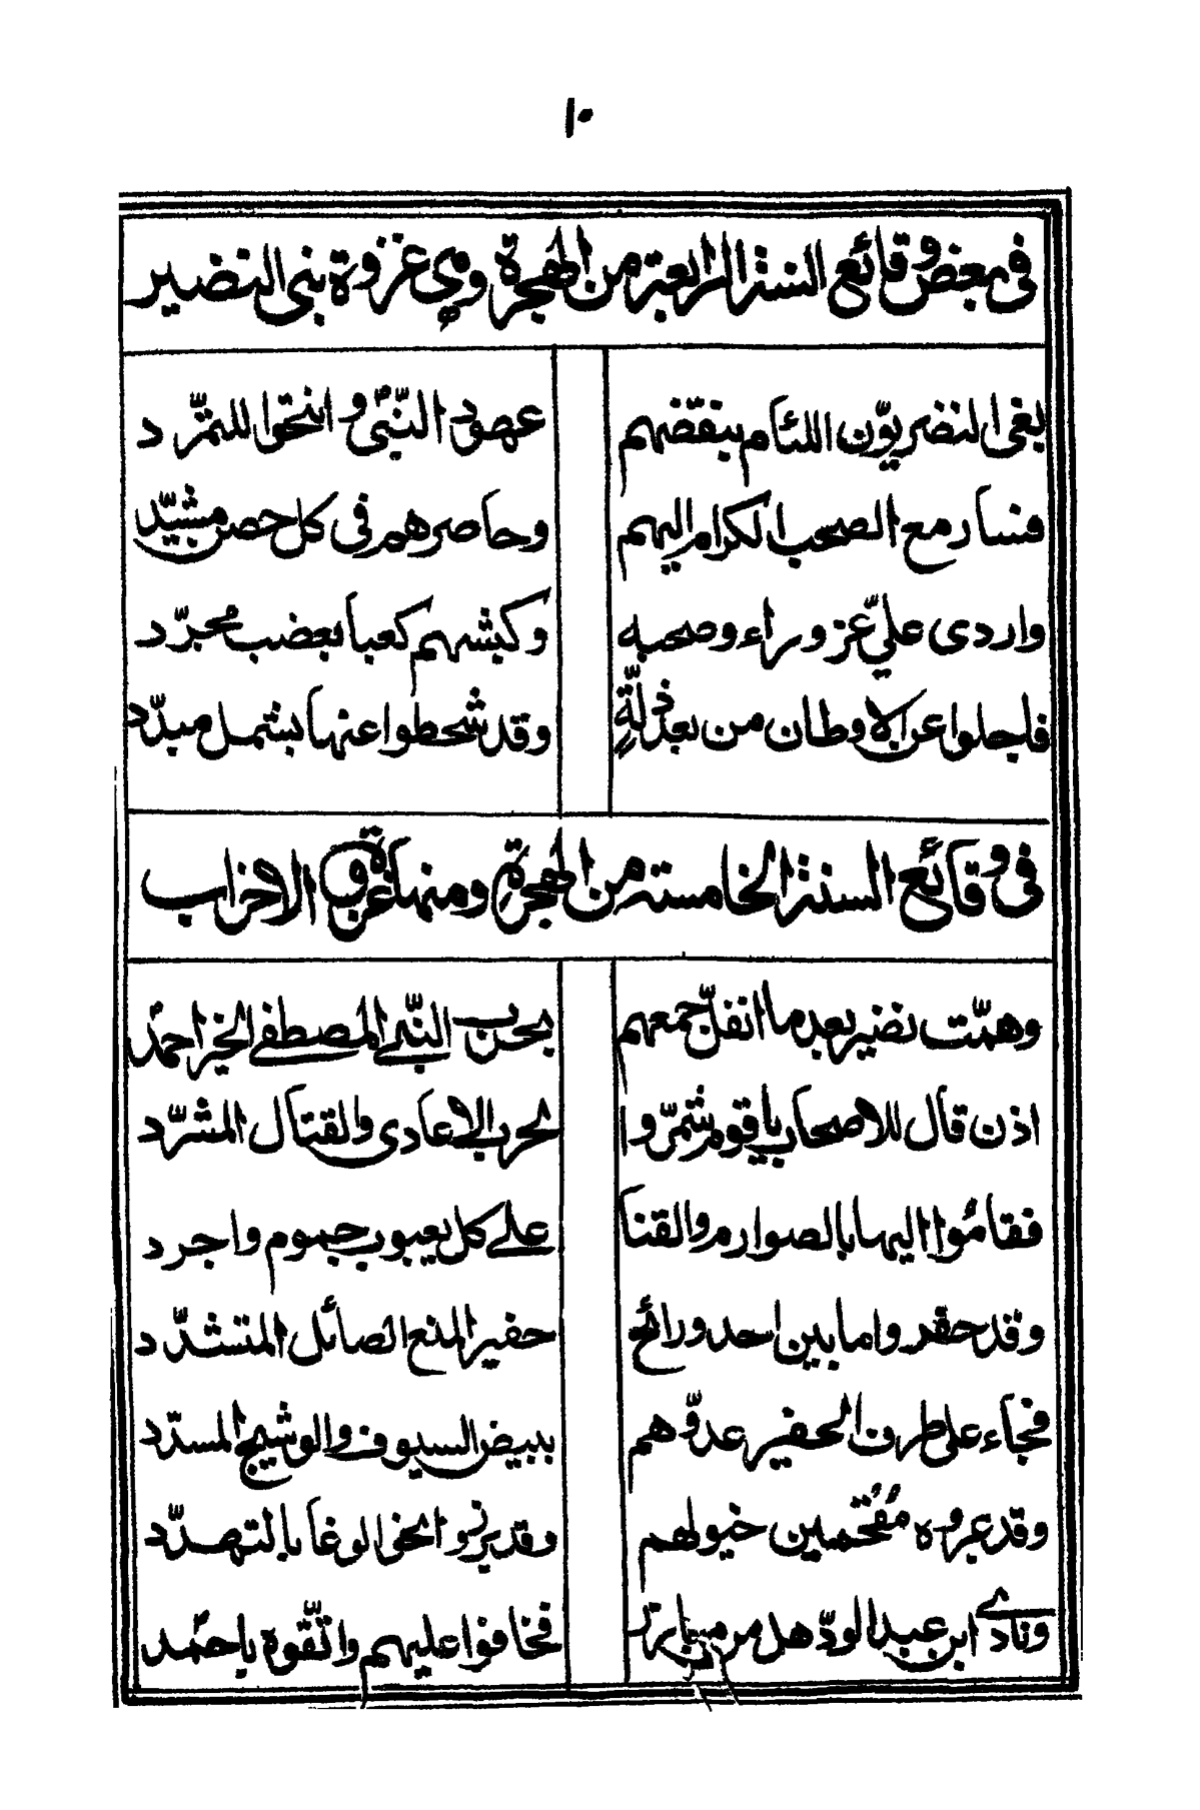 ١٠
في بعض وقائع السنة الرابعة من الهجرة وهي غزوة بني النضير
بغى النضريّون اللئام بنقضهم عهود النّبيّ وانتحوا للتمّرد
فسار مع الصحب الكرام اليهم وحاصرهم في كل حصن مشيّد
واردى عليّ عزوراء وصحبه وكبشهم كعبا بعضب مجرّد
فاجلوا عن الاوطان من بعد ذلّةٍ وقد شحطوا عنها بشمل مبدّد
في وقائع السنة الخامسة من الهجرة ومنها غزوة الاحزاب
وهمّت نضير بعد ما انفلّ جمعهم بحرب النّبي المصطفى الخير احمد
اذن قال للاصحاب يا قوم شمّروا لحرب الاعادي والقتال المشرّد
فقامُوا اليها بالصوارم والقنا على كل يعبوب جموم واجرد
وقد حفروا ما بين احد ورائح حفير المنع الصائل المتشدّد
فجاء على طرف الحفير عدوّهم ببيض السيوف والوشيج المسدّد
وقد عبروه مُقْحمين خيولهم وقد برزوا نحو الوغا بالتهدّد
ونادى ابن عبد الودّ هل من مبارز فخافوا عليهم واتّقوه باحمد